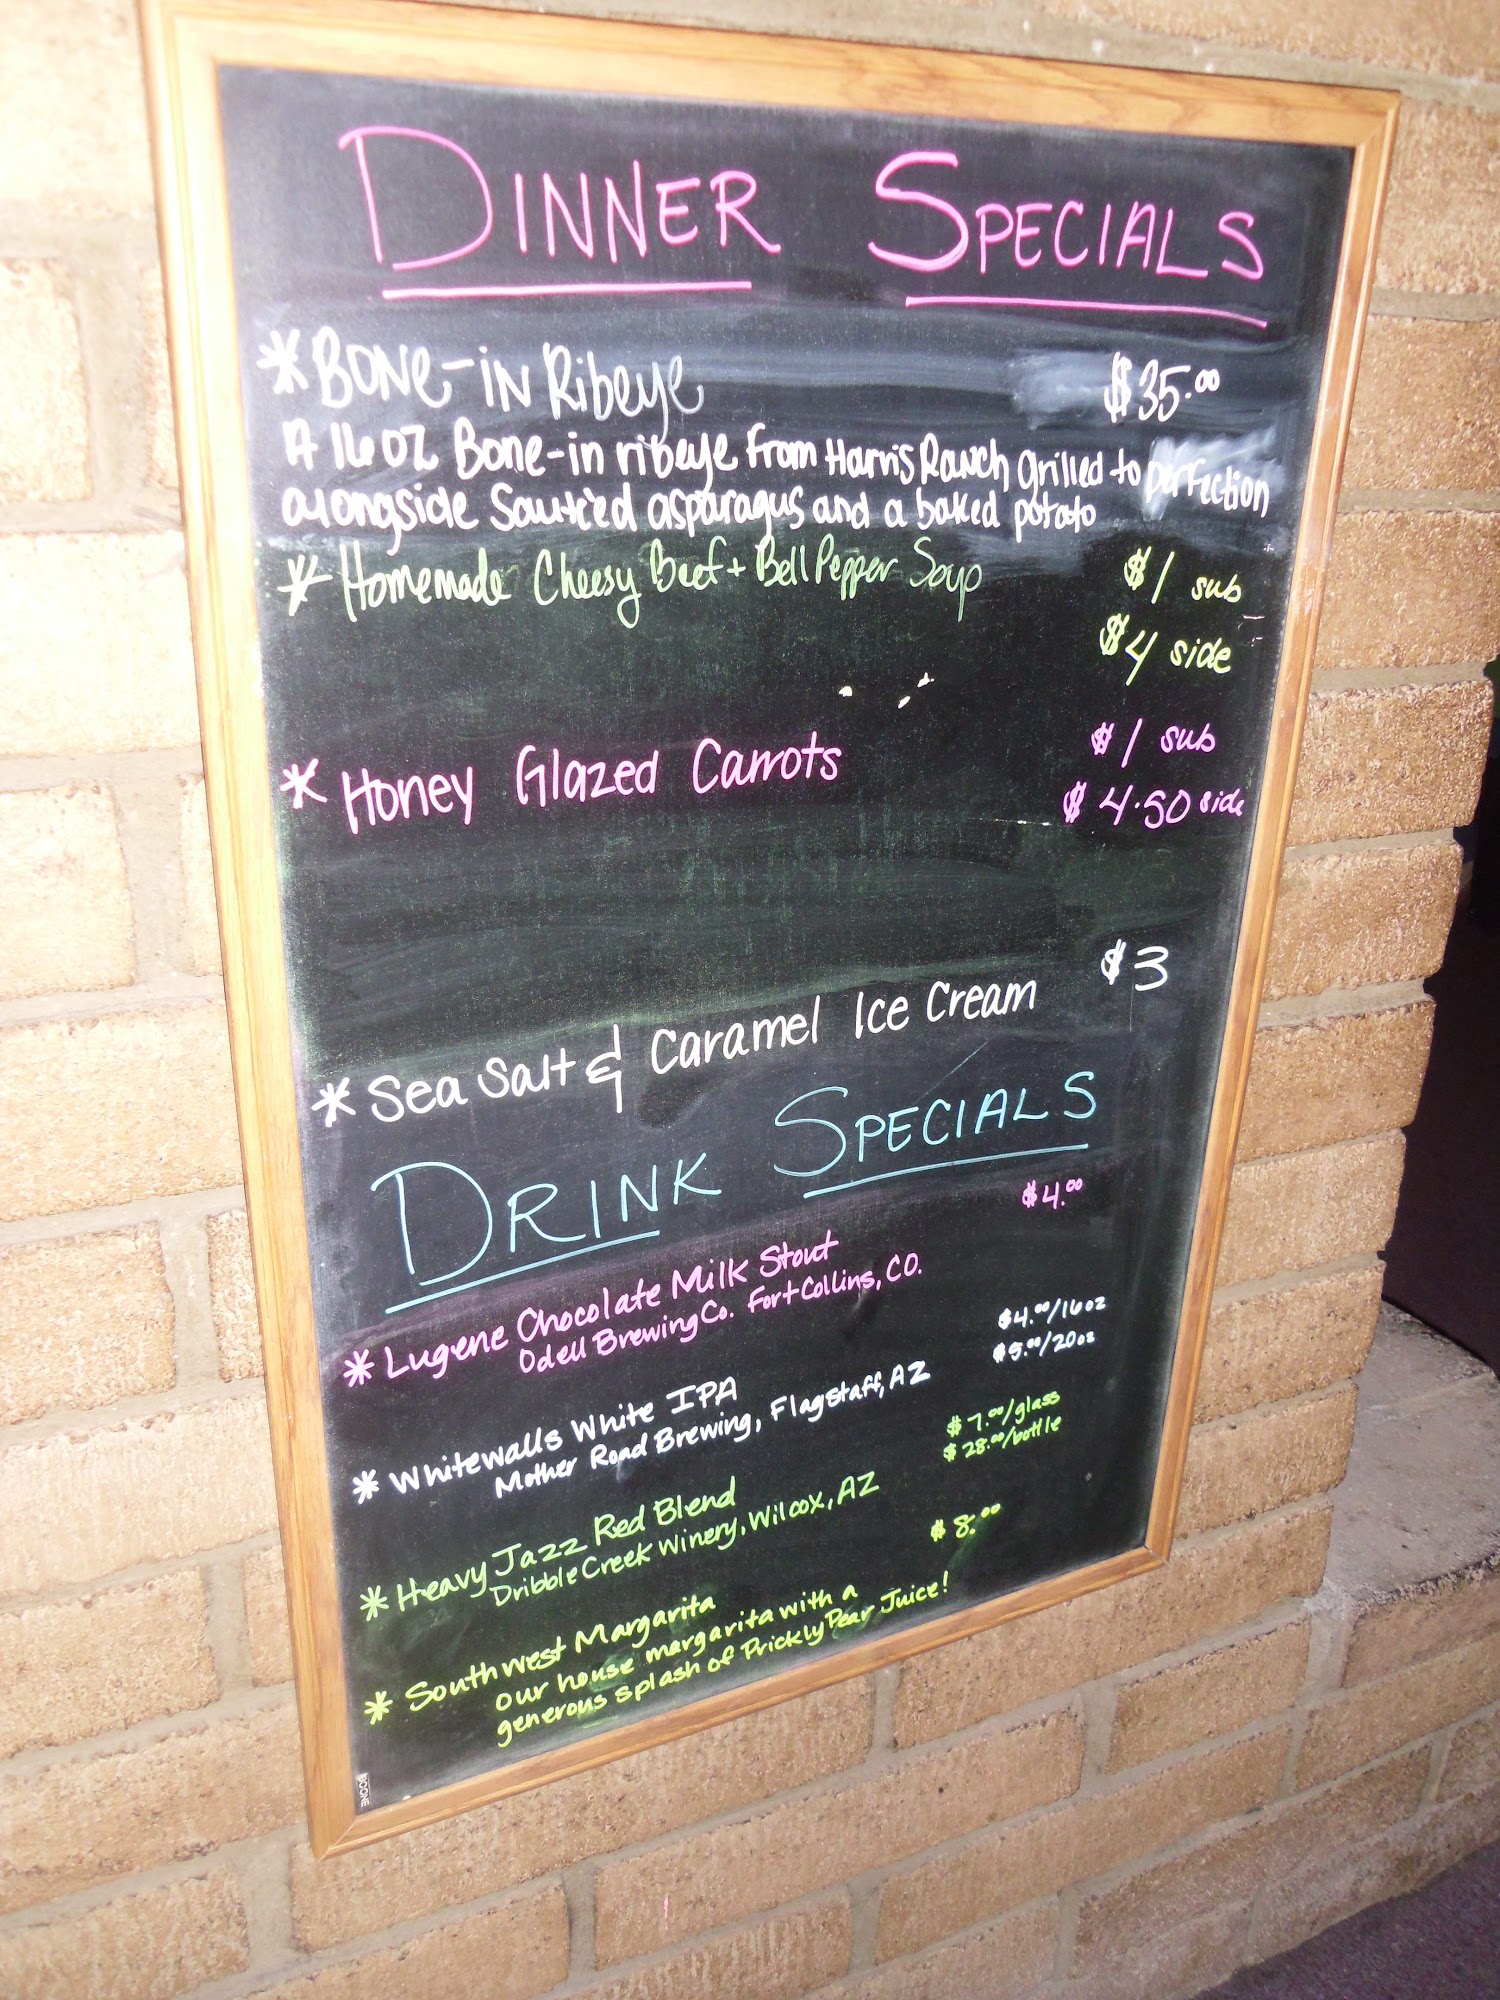 DINNER SPECIALS
* BONE-IN Ribeye $35.00
A 16 OZ Bone-in ribeye from Harris Ranch grilled to perfection
alongside Sauteéd asparagus and a baked potato
* Homemade Cheesy Beef + Bell Pepper Soup $1 sub
$4 side
* Honey Glazed Carrots $1 sub
$4.50 side
* Sea Salt & Caramel Ice Cream $3
DRINK SPECIALS
* Lugene Chocolate Milk Stout $4.00
Odell Brewing Co. Fort Collins, CO.
* Whitewalls White IPA $4.00/16oz
Mother Road Brewing, Flagstaff, AZ $5.00/20oz
* Heavy Jazz Red Blend $7.00/glass
Dribble Creek Winery, Wilcox, AZ $28.00/bottle
* Southwest Margarita $8.00
our house margarita with a
generous splash of Prickly Pear Juice!
BOONE